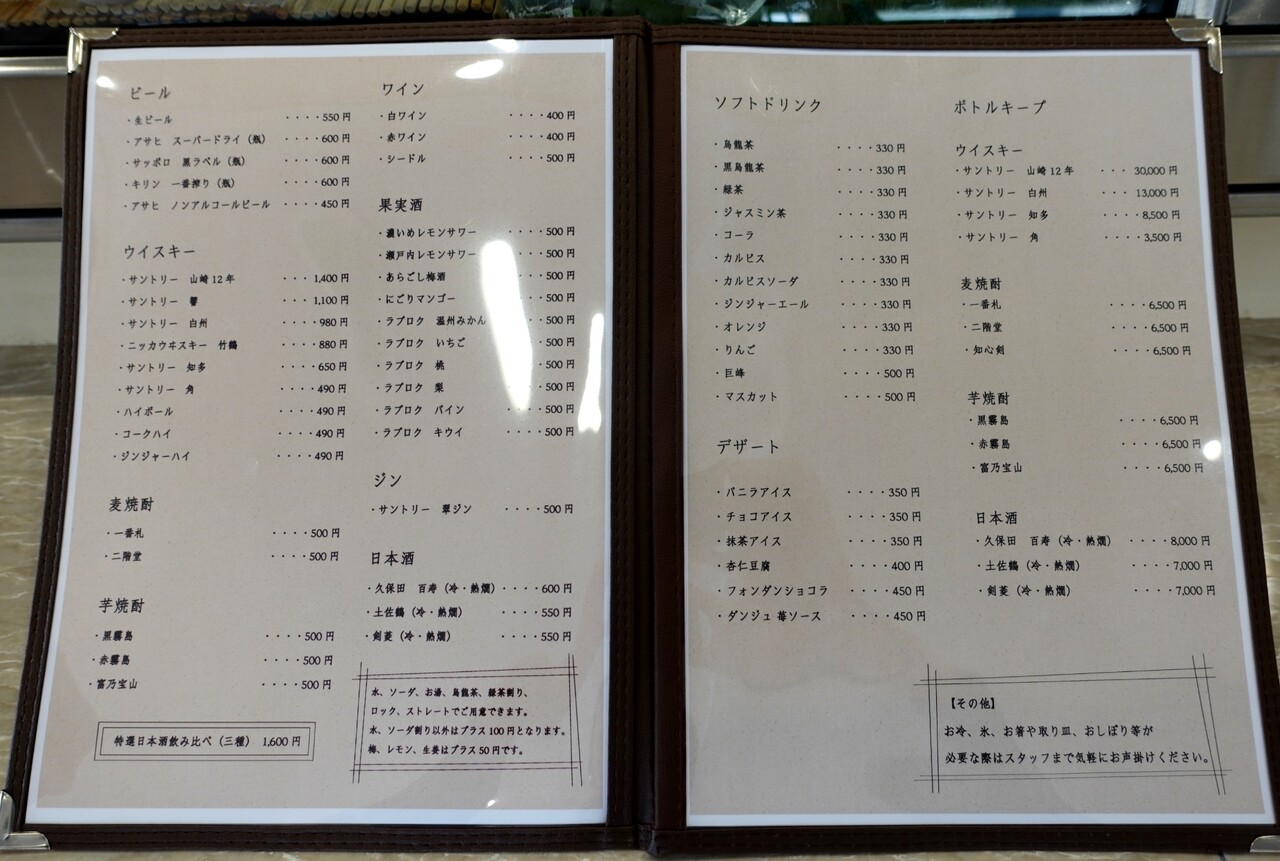 ビール
・生ビール ・・・・550円
・アサヒ スーパードライ（瓶） ・・・・600円
・サッポロ 黒ラベル（瓶） ・・・・600円
・キリン 一番搾り（瓶） ・・・・600円
・アサヒ ノンアルコールビール ・・・・450円
ウイスキー
・サントリー 山崎12年 ・・・1,400円
・サントリー 響 ・・・1,100円
・サントリー 白州 ・・・・980円
・ニッカウヰスキー 竹鶴 ・・・・880円
・サントリー 知多 ・・・・650円
・サントリー 角 ・・・・490円
・ハイボール ・・・・490円
・コークハイ ・・・・490円
・ジンジャーハイ ・・・・490円
麦焼酎
・一番札 ・・・・500円
・二階堂 ・・・・500円
芋焼酎
・黒霧島 ・・・・500円
・赤霧島 ・・・・500円
・富乃宝山 ・・・・500円
特選日本酒飲み比べ（三種） 1,600円
ワイン
・白ワイン ・・・・400円
・赤ワイン ・・・・400円
・シードル ・・・・500円
果実酒
・濃いめレモンサワー ・・・・500円
・瀬戸内レモンサワー ・・・・500円
・あらごし梅酒 ・・・・500円
・にごりマンゴー ・・・・500円
・ラブロク 温州みかん ・・・・500円
・ラブロク いちご ・・・・500円
・ラブロク 桃 ・・・・500円
・ラブロク 梨 ・・・・500円
・ラブロク パイン ・・・・500円
・ラブロク キウイ ・・・・500円
ジン
・サントリー 翠ジン ・・・・500円
日本酒
・久保田 百寿（冷・熱燗）・・・・600円
・土佐鶴（冷・熱燗） ・・・・550円
・剣菱（冷・熱燗） ・・・・550円
水、ソーダ、お湯、烏龍茶、緑茶割り、
ロック、ストレートでご用意できます。
水、ソーダ割り以外はプラス100円となります。
梅、レモン、生姜はプラス50円です。
ソフトドリンク
・烏龍茶 ・・・・330円
・黒烏龍茶 ・・・・330円
・緑茶 ・・・・330円
・ジャスミン茶 ・・・・330円
・コーラ ・・・・330円
・カルピス ・・・・330円
・カルピスソーダ ・・・・330円
・ジンジャーエール ・・・・330円
・オレンジ ・・・・330円
・りんご ・・・・330円
・巨峰 ・・・・500円
・マスカット ・・・・500円
デザート
・バニラアイス ・・・・350円
・チョコアイス ・・・・350円
・抹茶アイス ・・・・350円
・杏仁豆腐 ・・・・400円
・フォンダンショコラ ・・・・450円
・ダンジュ 苺ソース ・・・・450円
ボトルキープ
ウイスキー
・サントリー 山崎12年 ・・・30,000円
・サントリー 白州 ・・・13,000円
・サントリー 知多 ・・・・8,500円
・サントリー 角 ・・・・3,500円
麦焼酎
・一番札 ・・・・6,500円
・二階堂 ・・・・6,500円
・知心剣 ・・・・6,500円
芋焼酎
・黒霧島 ・・・・6,500円
・赤霧島 ・・・・6,500円
・富乃宝山 ・・・・6,500円
日本酒
・久保田 百寿（冷・熱燗） ・・・・8,000円
・土佐鶴（冷・熱燗） ・・・・7,000円
・剣菱（冷・熱燗） ・・・・7,000円
【その他】
お冷、氷、お箸や取り皿、おしぼり等が
必要な際はスタッフまで気軽にお声掛けください。